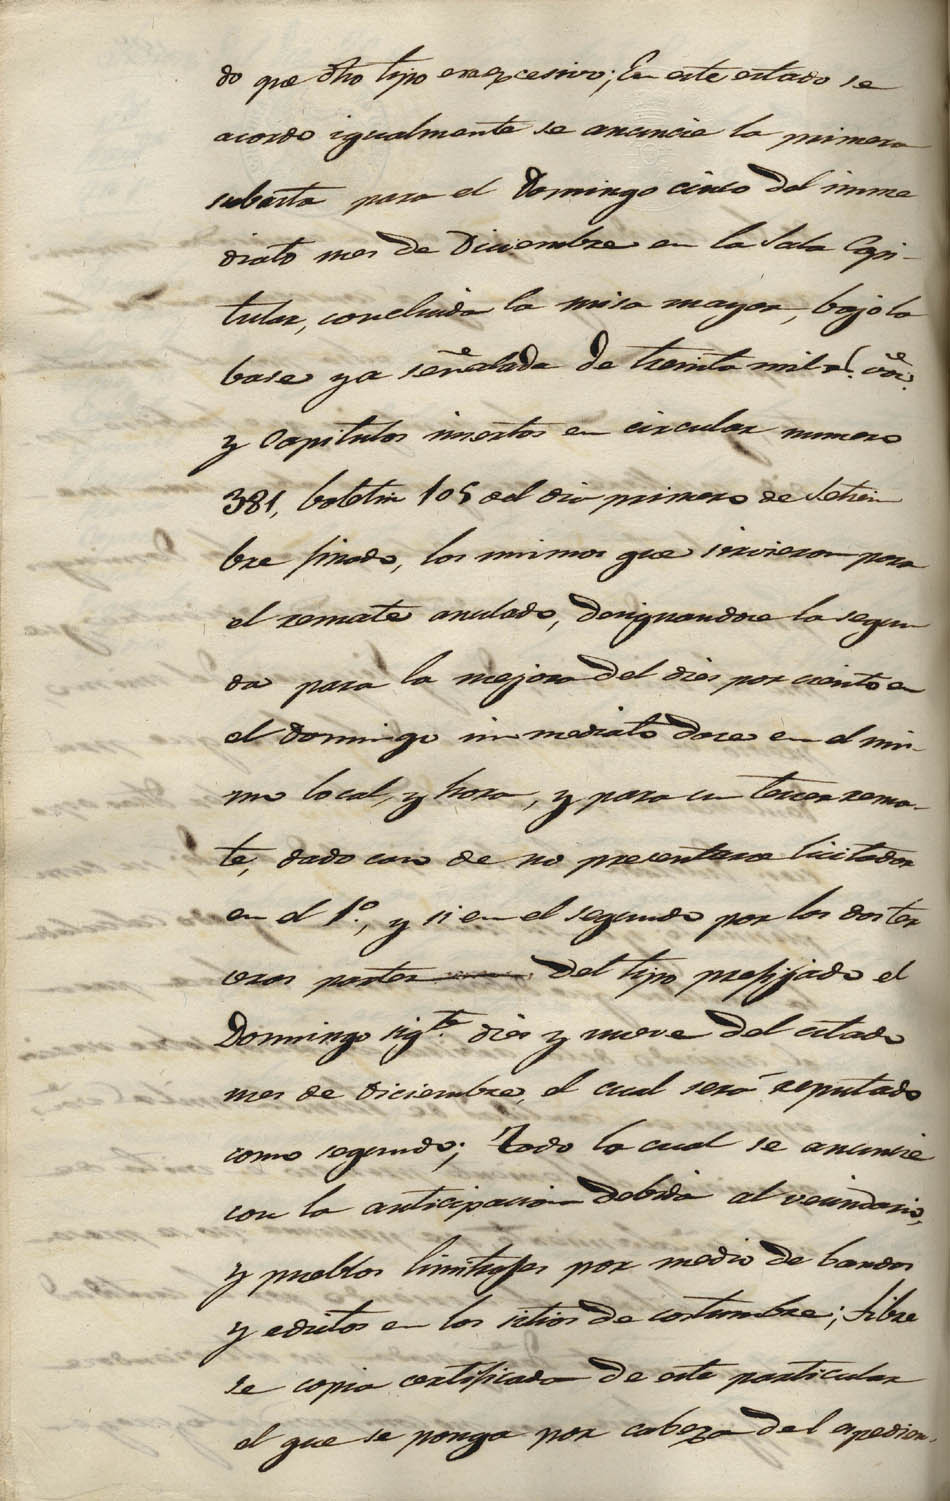 do que dho tipo era excesivo; En este estado se
acordo igualmente se anuncie la primera
subasta para el Domingo cinco del inme
diato mes de Diciembre en la Sala Capi-
tular, concluida la misa mayor, bajo la
base ya señalada de treinta mil rl. von.
y Capitulos insertos en circular numero
381, boletin 105 del dia primero de Setiem
bre finado, los mismos que sirvieron para
el remate anulado, designandose la segun
da para la mejora del dies por ciento en
el domingo inmediato doce en el mis-
mo local, y hora, y para un tercer rema-
te, dado caso de no presentarse licitador
en el 1º, y si en el segundo por las dos ter
ceras partes del tipo prefijado el
Domingo sigte. dies y nueve del citado
mes de Diciembre, el cual será reputado
como segundo; Todo lo cual se anuncie
con la anticipacion debida al vecindario,
y pueblos limitrofes por medio de bandos
y edictos en los sitios de costumbre; Libre
se copia certificada de este particular
el que se ponga por cabeza del espedien.